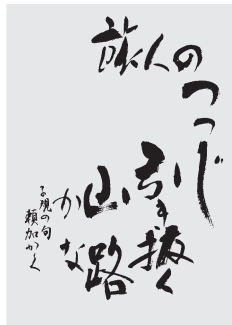 旅人の
つつじ
引き抜く
山路
かな
子規の句
頼加かく